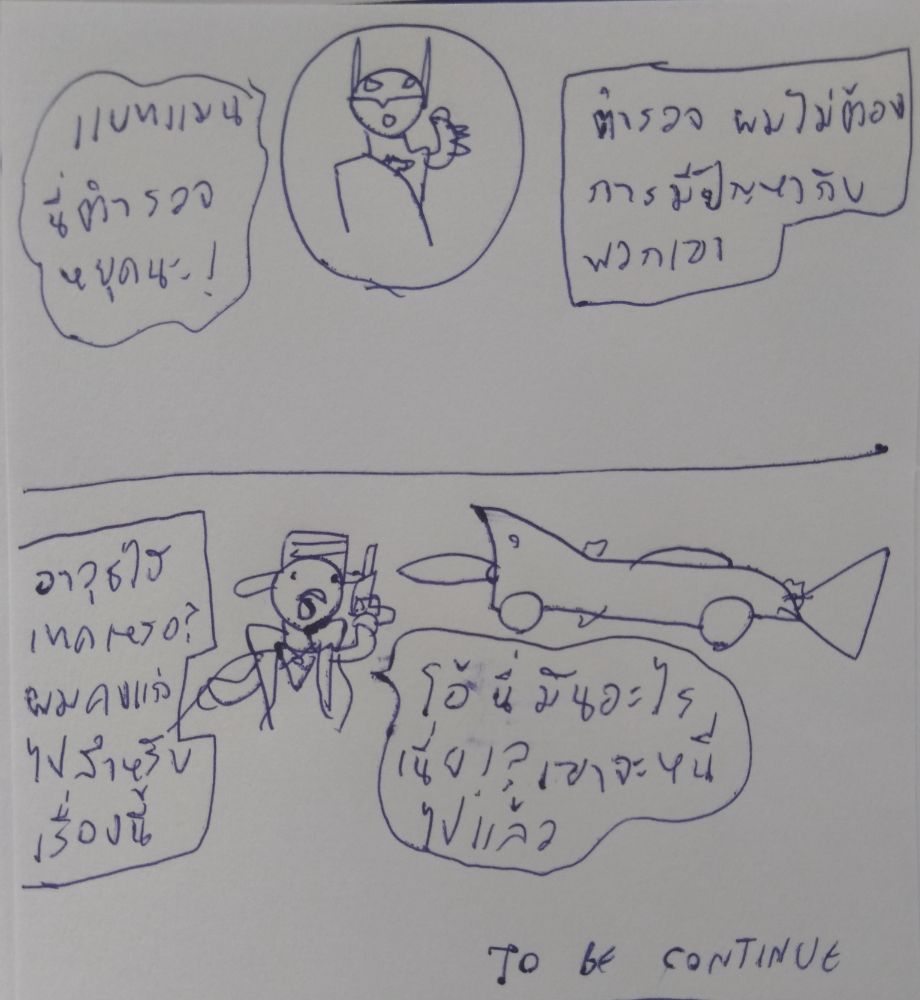 แบทแมน
นี่ตำรวจ
หยุดนะ!
ตำรวจ ผมไม่ต้อง
การมีปัญหากับ
พวกเขา
อาวุธไฮ
เทคเหรอ?
ผมคงแก่
ไปสำหรับ
เรื่องนี้
โอ้ นี่ มันอะไร
เนี่ย!? เขาจะหนี
ไปแล้ว
TO BE CONTINUE